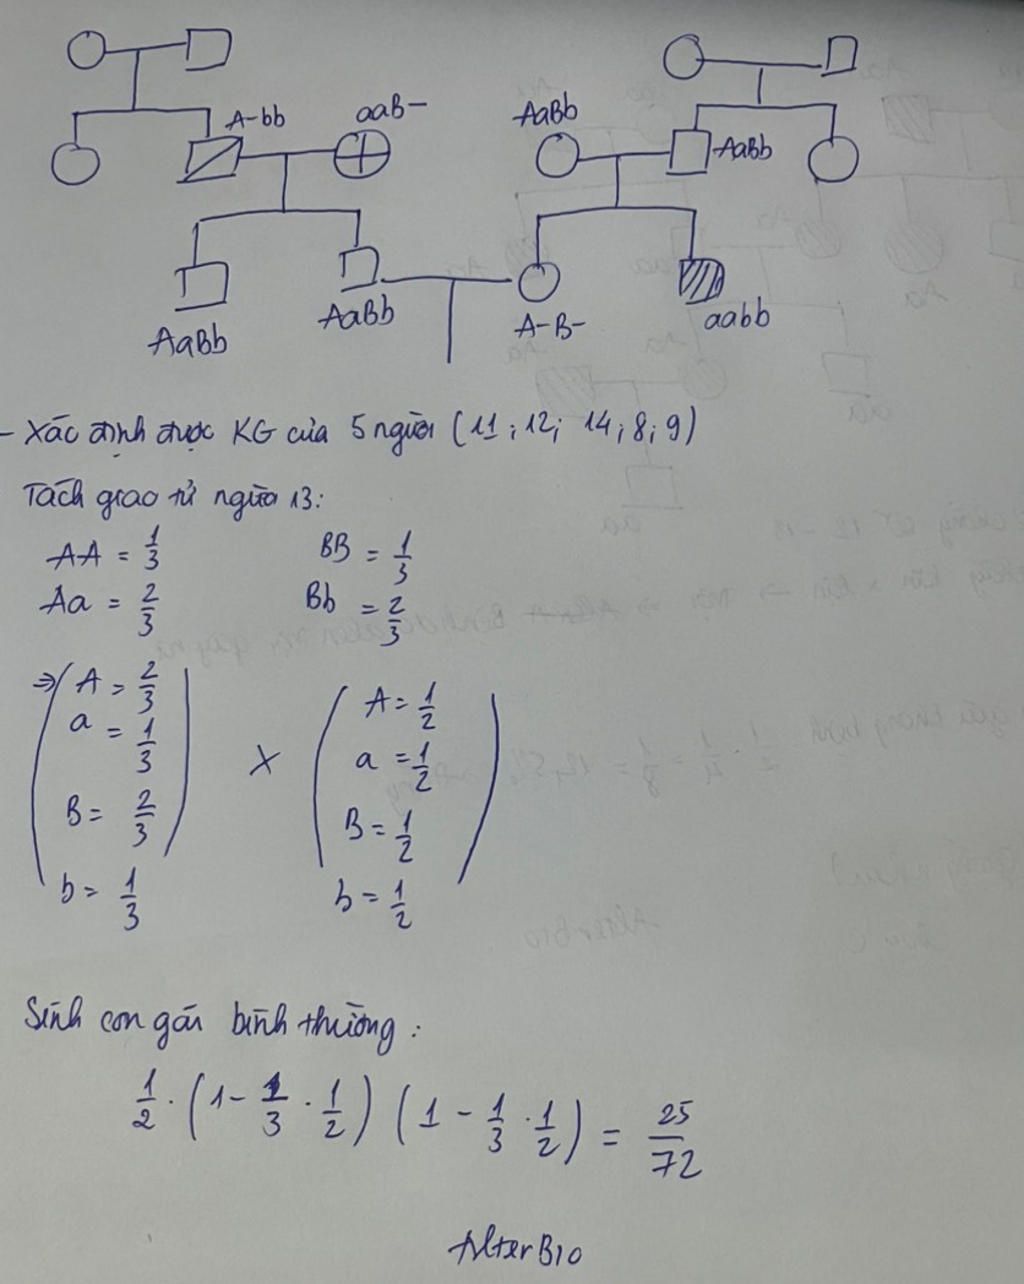 A-bb aaB- AaBb AaBb
AaBb AaBb A-B- aabb
- Xác định được KG của 5 người (11; 12; 14; 8; 9)
Tách giao tử người 13:
AA = 1/3 BB = 1/3
Aa = 2/3 Bb = 2/3
=> ( A = 2/3 ) X ( A = 1/2 )
a = 1/3 a = 1/2
B = 2/3 B = 1/2
b = 1/3 b = 1/2
Sinh con gái bình thường:
1/2 . (1 - 1/3 . 1/2) (1 - 1/3 . 1/2) = 25/72
AlterBio